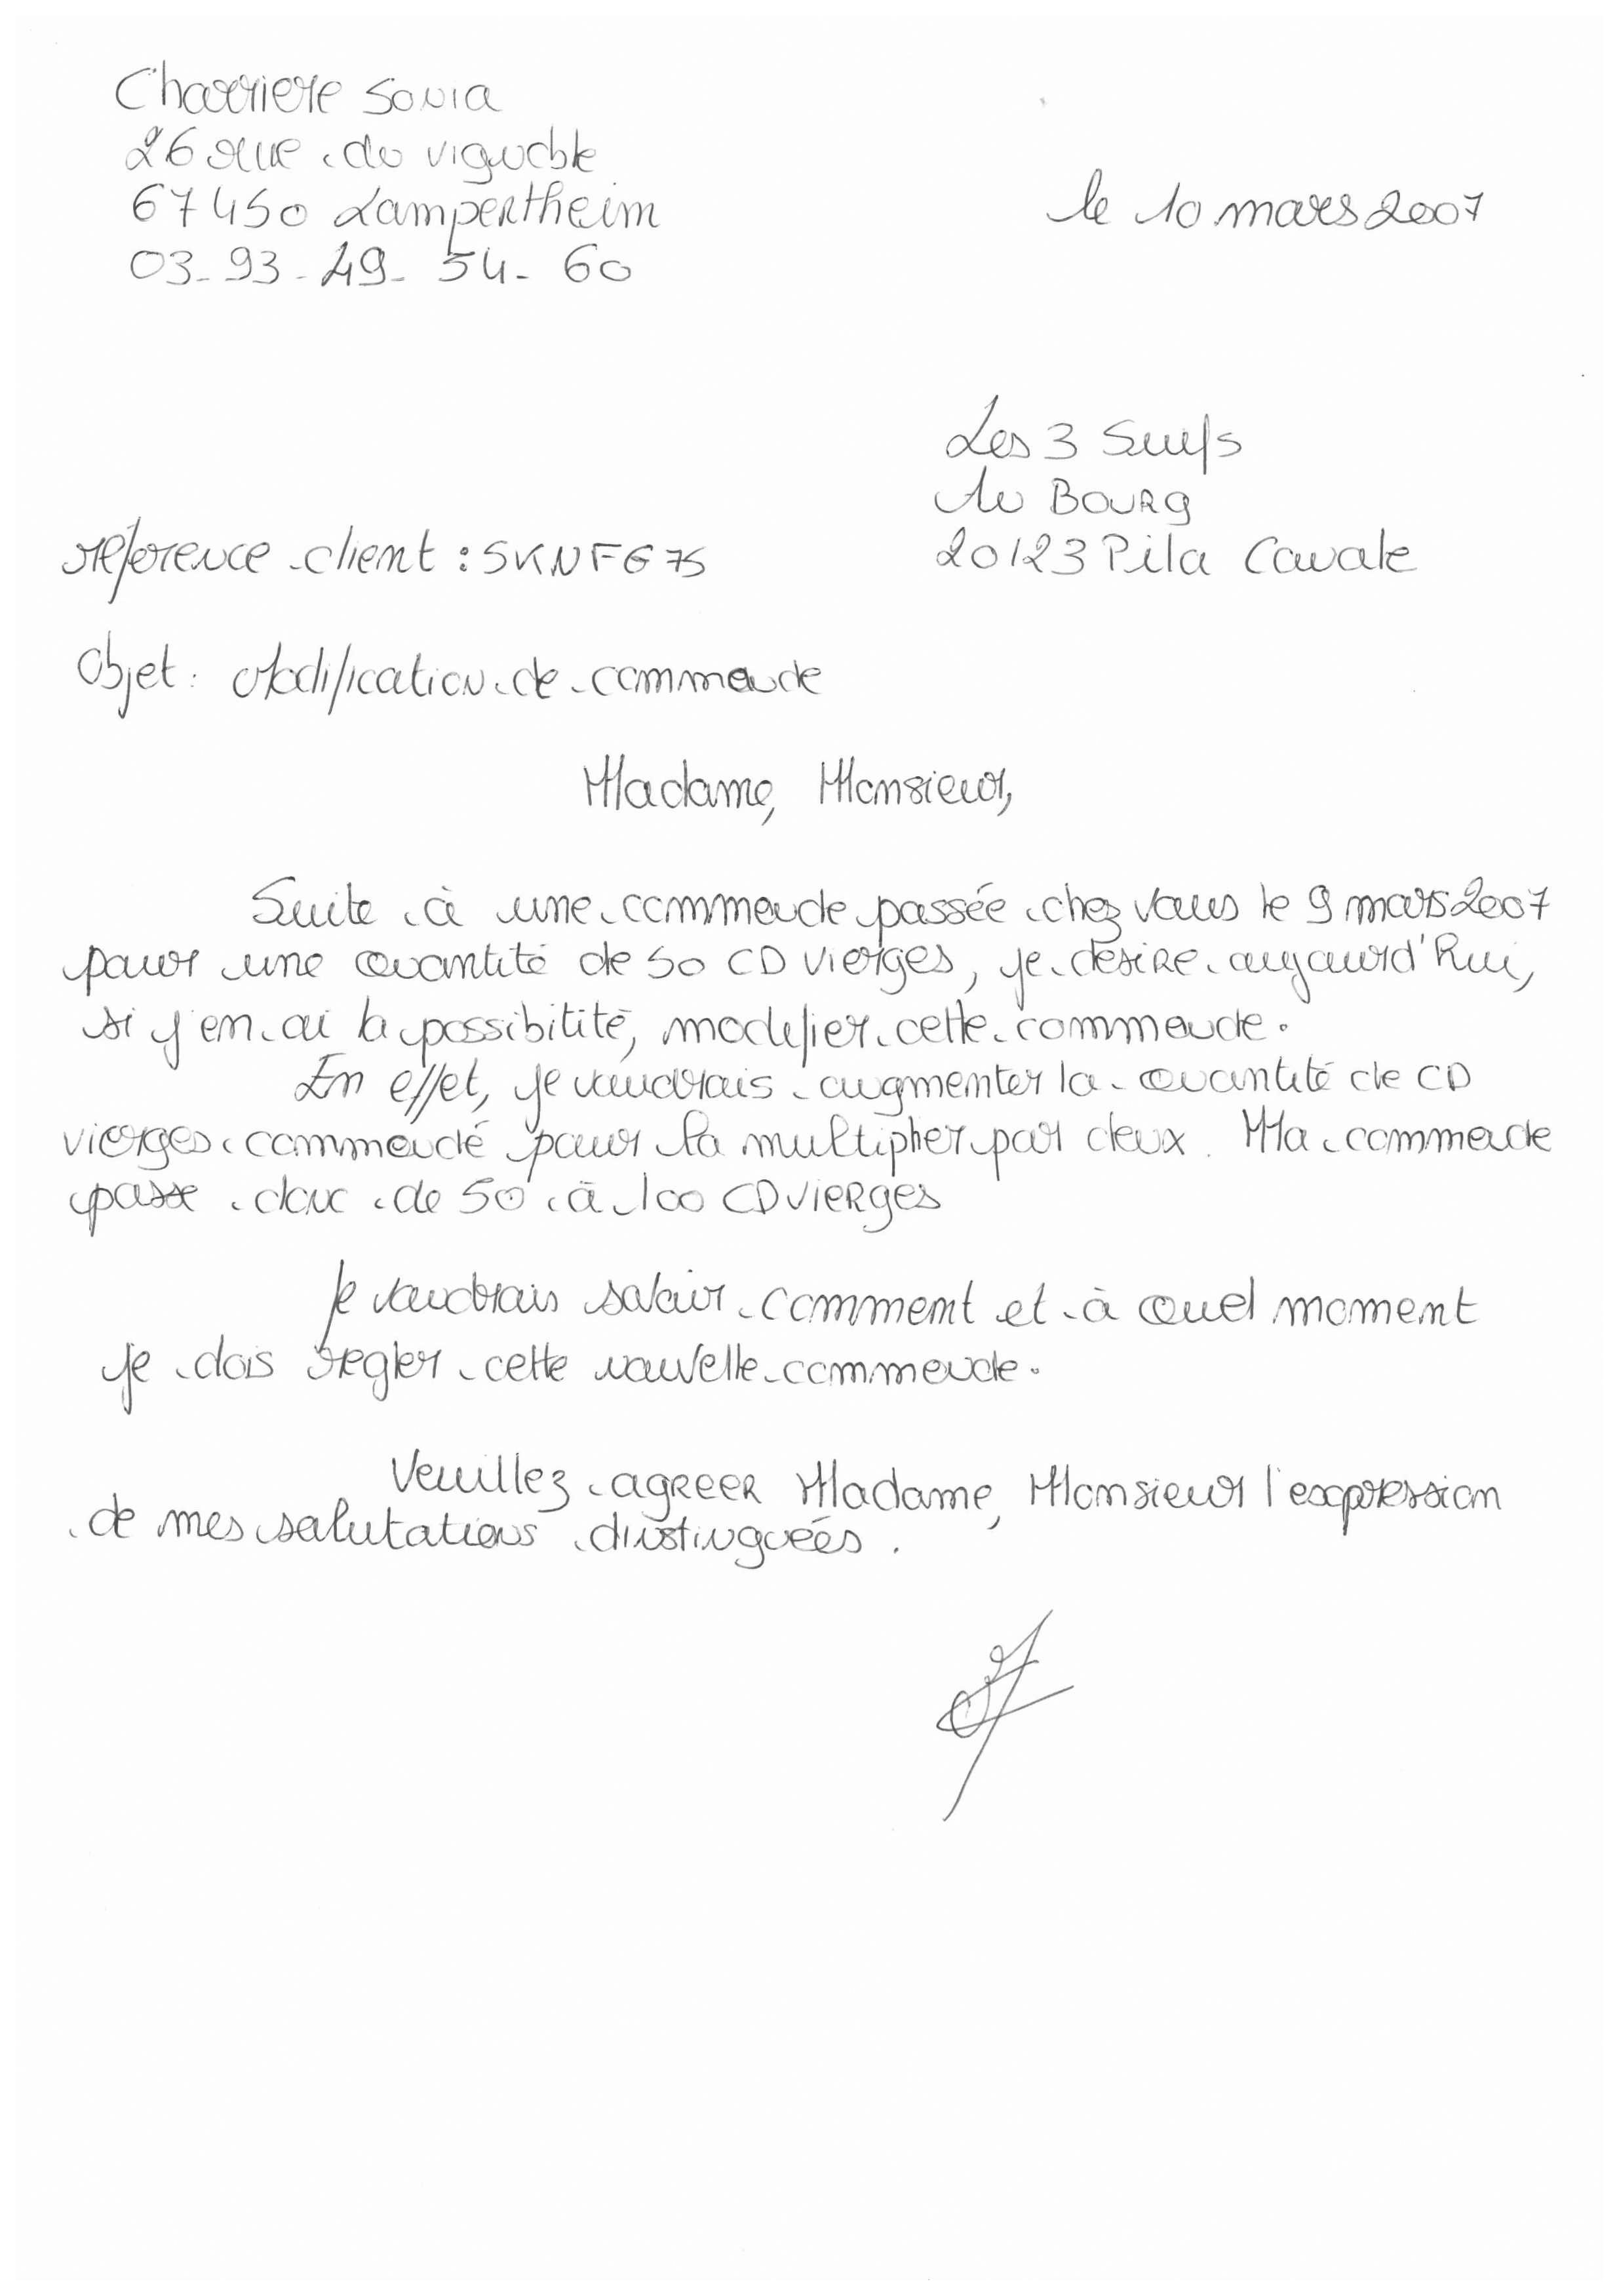 Charriere Sonia
26 rue du vignoble
67450 Lampertheim
03-93-49-54-60
le 10 mars 2007
Les 3 Suifs
Au BOURG
20123 Pila Cavale
réference client : SKNFG75
Objet : Modification de commande
Madame, Monsieur,
Suite à une commande passée chez vous le 9 mars 2007
pour une quantité de 50 CD vierges, je désire aujourd'hui,
si j'en ai la possibilité, modifier cette commande.
En effet, je voudrais augmenter la quantité de CD
vierges commandé pour la multiplier par deux. Ma commade
passe donc de 50 à 100 CD vierges
Je voudrais savoir comment et à quel moment
je dois régler cette nouvelle commande.
Veuillez agréer Madame, Monsieur l'expression
de mes salutations distinguées.